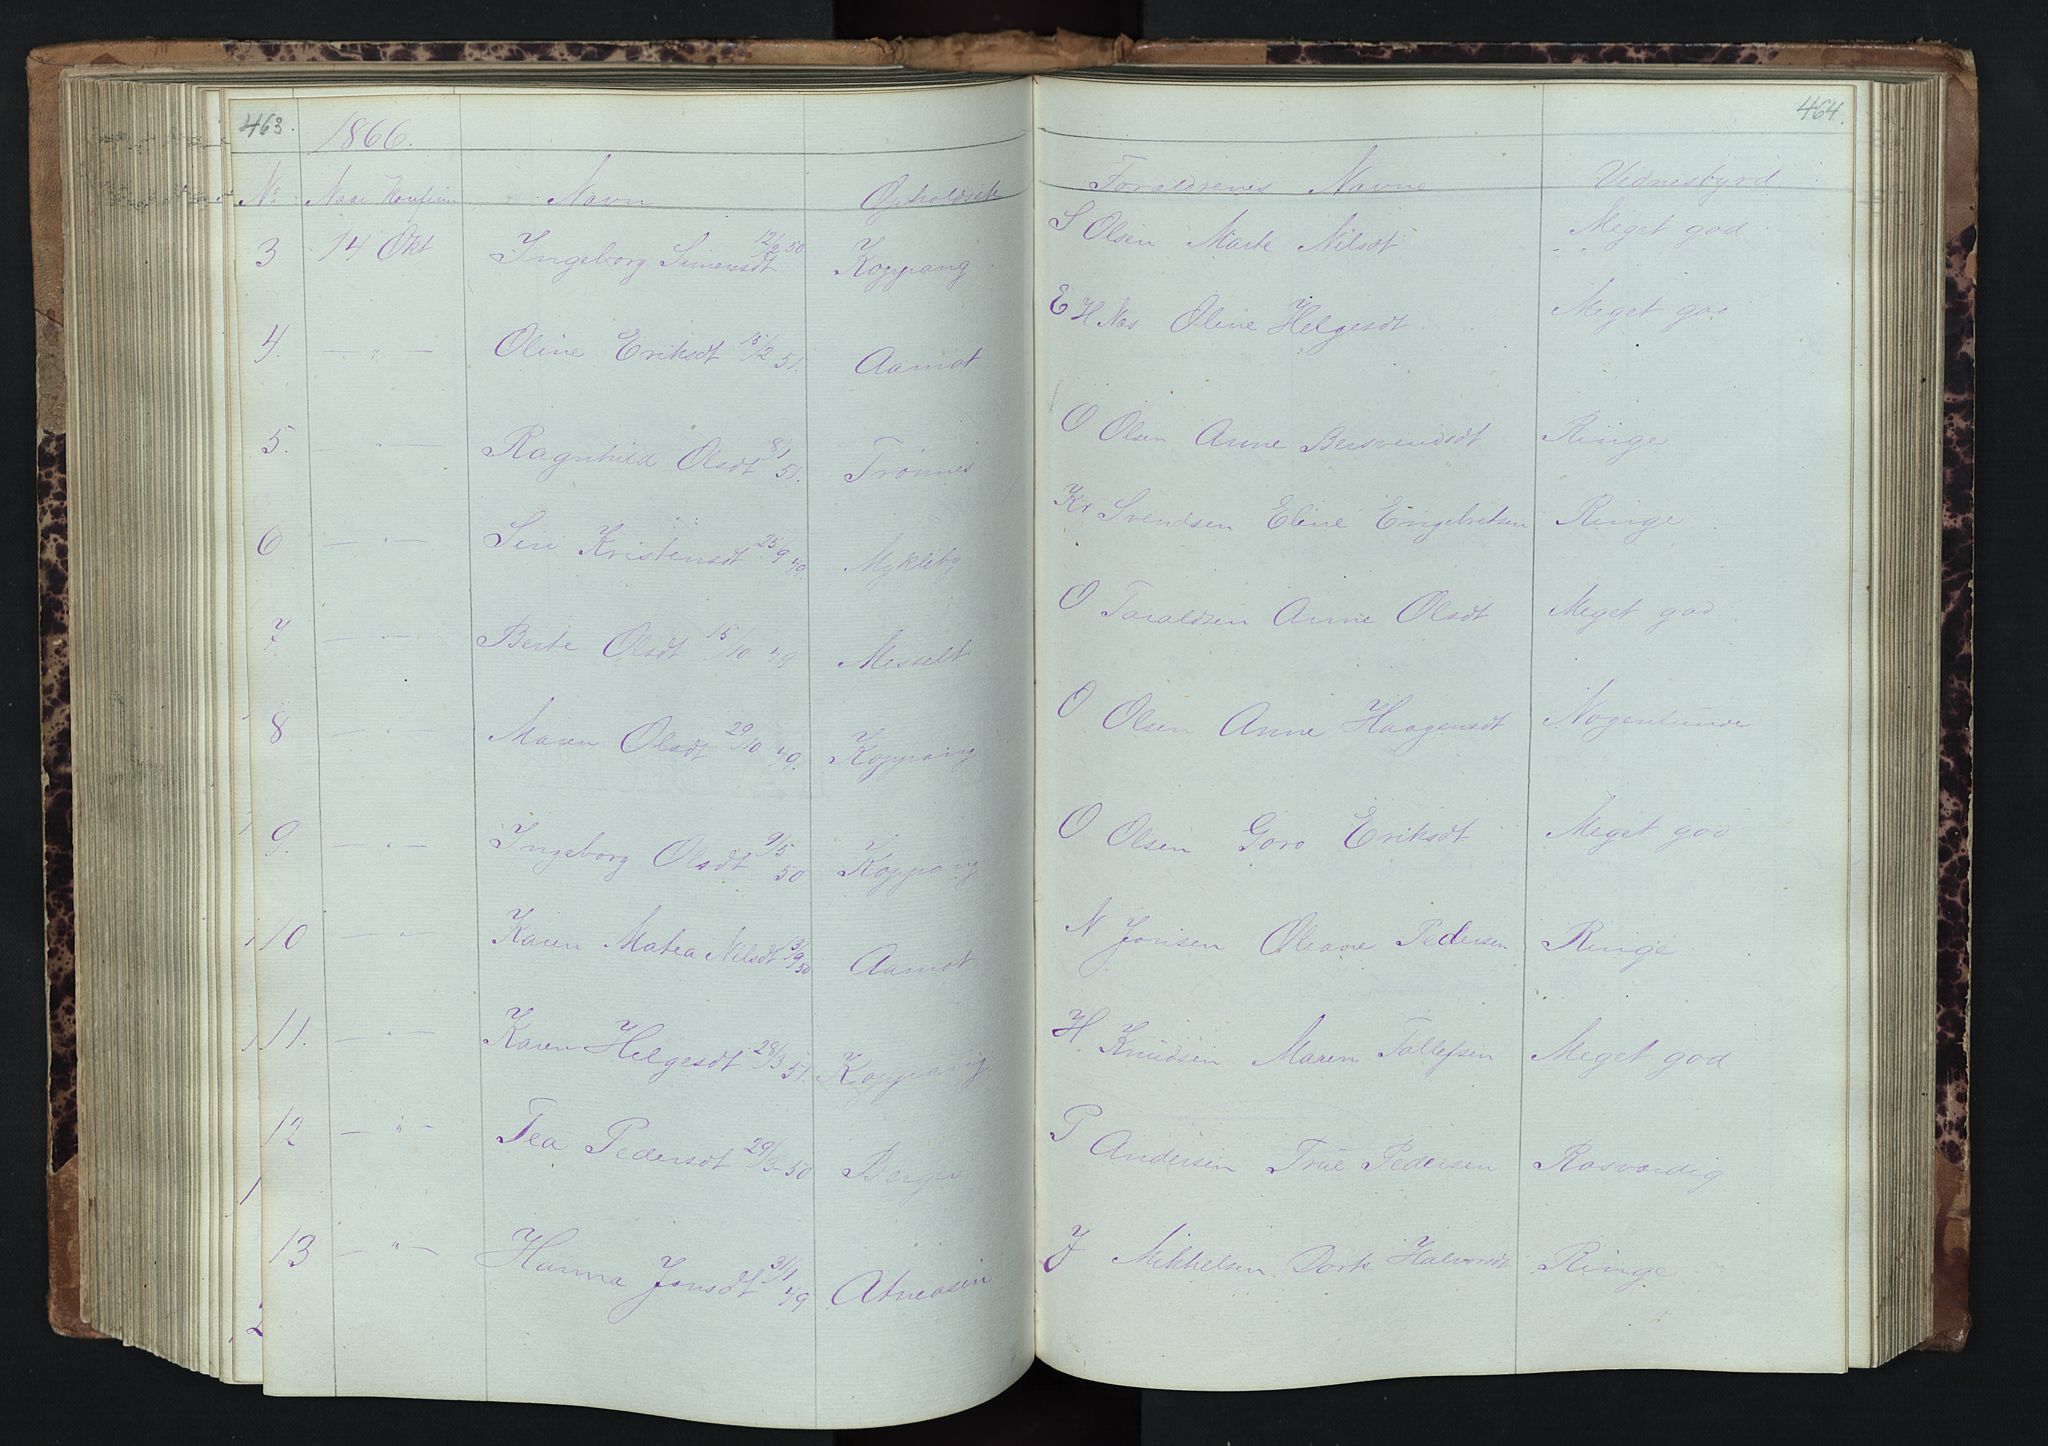 463.
1866.
No Naar Konfirm Navn Opholdsst
3 14 Okt Ingeborg Simensdt 12/2 50 Koppang
4. — " — Oline Eriksdt 15/2 51. Aamot
5. — " — Ragnhild Olsdt 8/1 51. Trønnes
6 — " — Siri Kristensdt 25/9 49 Mykleby
7 — " — Berte Olsdt 15/10 49 Messelt
8 — " — Maren Olsdt 29/10 49. Koppang
9. — " — Ingeborg Olsdt 9/5 50 Koppang
10 — " — Karen Matea Nilsdt 3/9 50 Aamot
11. — " — Karen Helgesdt 28/3 51. Koppang
12 — " — Tea Pedersdt 29/3 - 50 Berger
13 — " — Hanna Jonsdt 3/1 49 Atneosen
464.
Foraldrenes Navne Vidnesbyrd
S Olsen Marte Nilsdt Meget god
E H Næs Oline Helgesdt Meget god
O Olsen Anne Bersvendsdt Ringe
Kr Svendsen Eline Engebretsen Ringe
O Taraldsen Anne Olsdt Meget god
O Olsen Anne Haagensdt Nogenlunde
O Olsen Goro Eriksdt Meget god
N Jonsen Oleane Pedersen Ringe
H Knudsen Maren Tollefsen Meget god
P Andersen True Pedersen Rosvardig
J Mikkelsen Dorte Halvorsdt Ringe